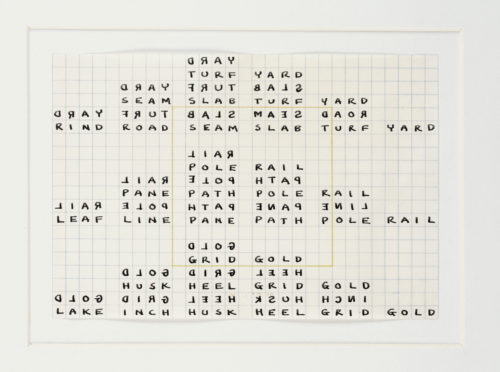 YARD
TURF YARD
YARD TURF SLAB
SEAM SLAB TURF YARD
YARD TURF SLAB SEAM ROAD
RIND ROAD SEAM SLAB TURF YARD
RAIL
POLE RAIL
RAIL POLE PATH
PANE PATH POLE RAIL
RAIL POLE PATH PANE LINE
LEAF LINE PANE PATH POLE RAIL
GOLD
GRID GOLD
GOLD GRID HEEL
HUSK HEEL GRID GOLD
GOLD GRID HEEL HUSK INCH
LAKE INCH HUSK HEEL GRID GOLD